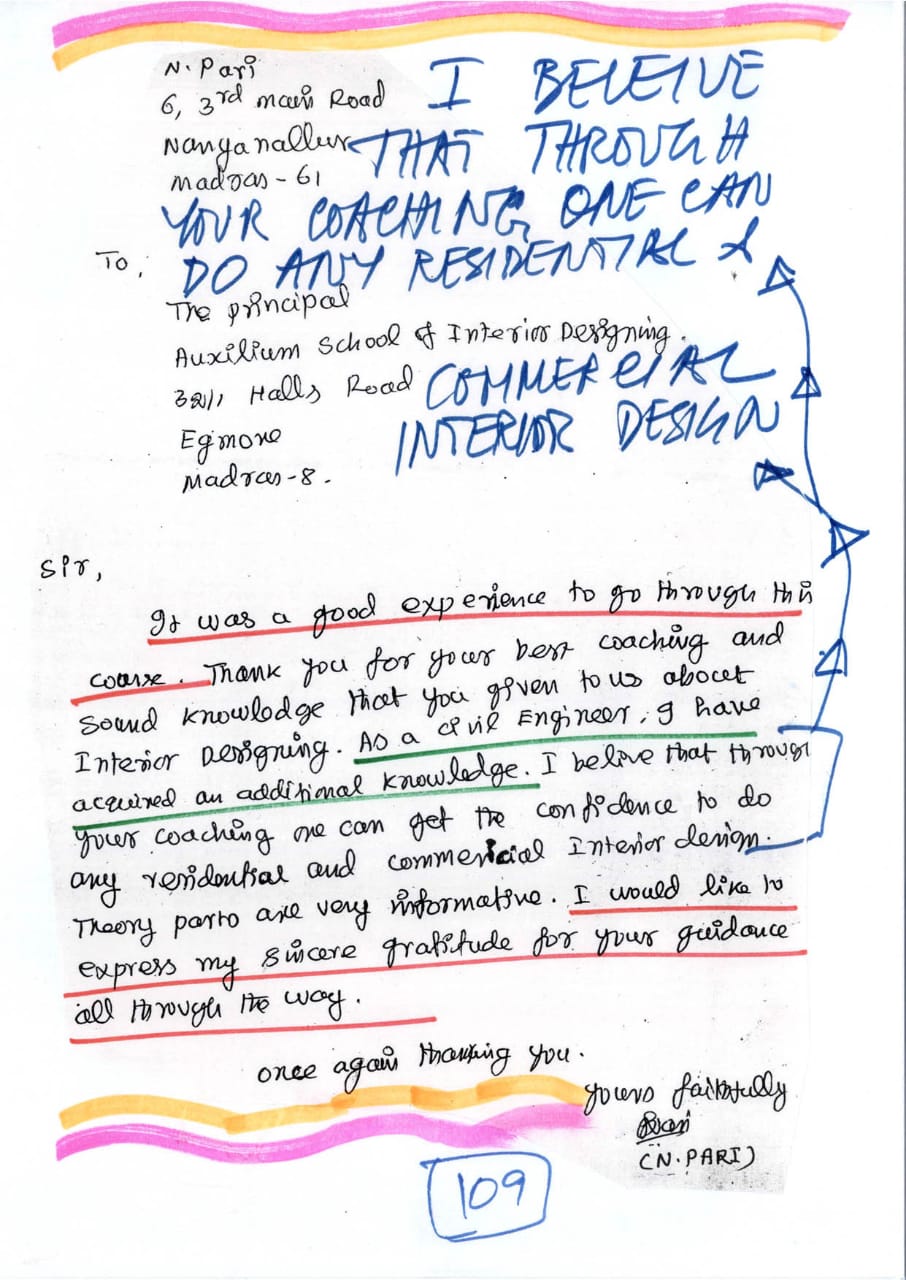 N. Pari
6, 3rd main Road
Nanganallur
Madras - 61
I BELEIVE
THAT THROUGH
YOUR COACHING, ONE CAN
DO ANY RESIDENTIAL &
COMMERCIAL
INTERIOR DESIGN
To,
The principal
Auxilium School of Interior Designing.
32/1, Halls Road
Egmore
Madras-8.
Sir,
It was a good experience to go through this
course. Thank you for your best coaching and
sound knowledge that you given to us about
Interior Designing. As a civil Engineer, I have
acquired an additional knowledge. I belive that through
your coaching one can get the confidence to do
any residential and commericial Interior design.
Theory parts are very informative. I would like to
express my sincere gratitude for your guidance
all through the way.
once again thanking you.
yours faithfully
Pari
(N. PARI)
109